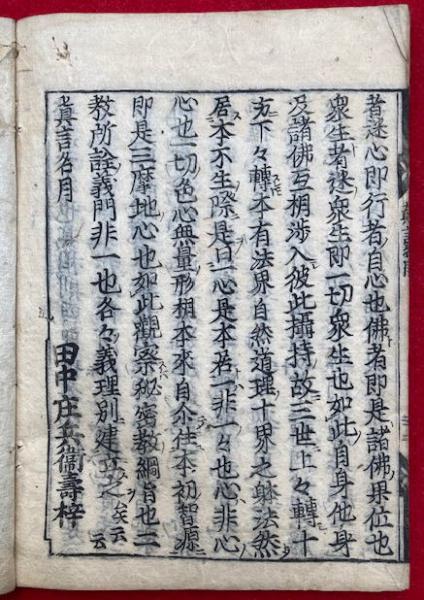 者迷心即行者自心也佛者即是諸佛果位也
衆生者迷衆生即一切衆生也如此自身他身
及諸佛互相渉入彼此攝持故三世上々轉十
方下々轉本有法界自然道理十界之躰法然
居本不生際是曰一心是本若一非一々也心非心
心也一切色心無量形相本來自介住本初智源
即是三摩地心也如此觀察秘密教綱旨也二
教所詮義門非一也各々義理別建立之矣云云
眞言名月
田中庄兵衞壽梓